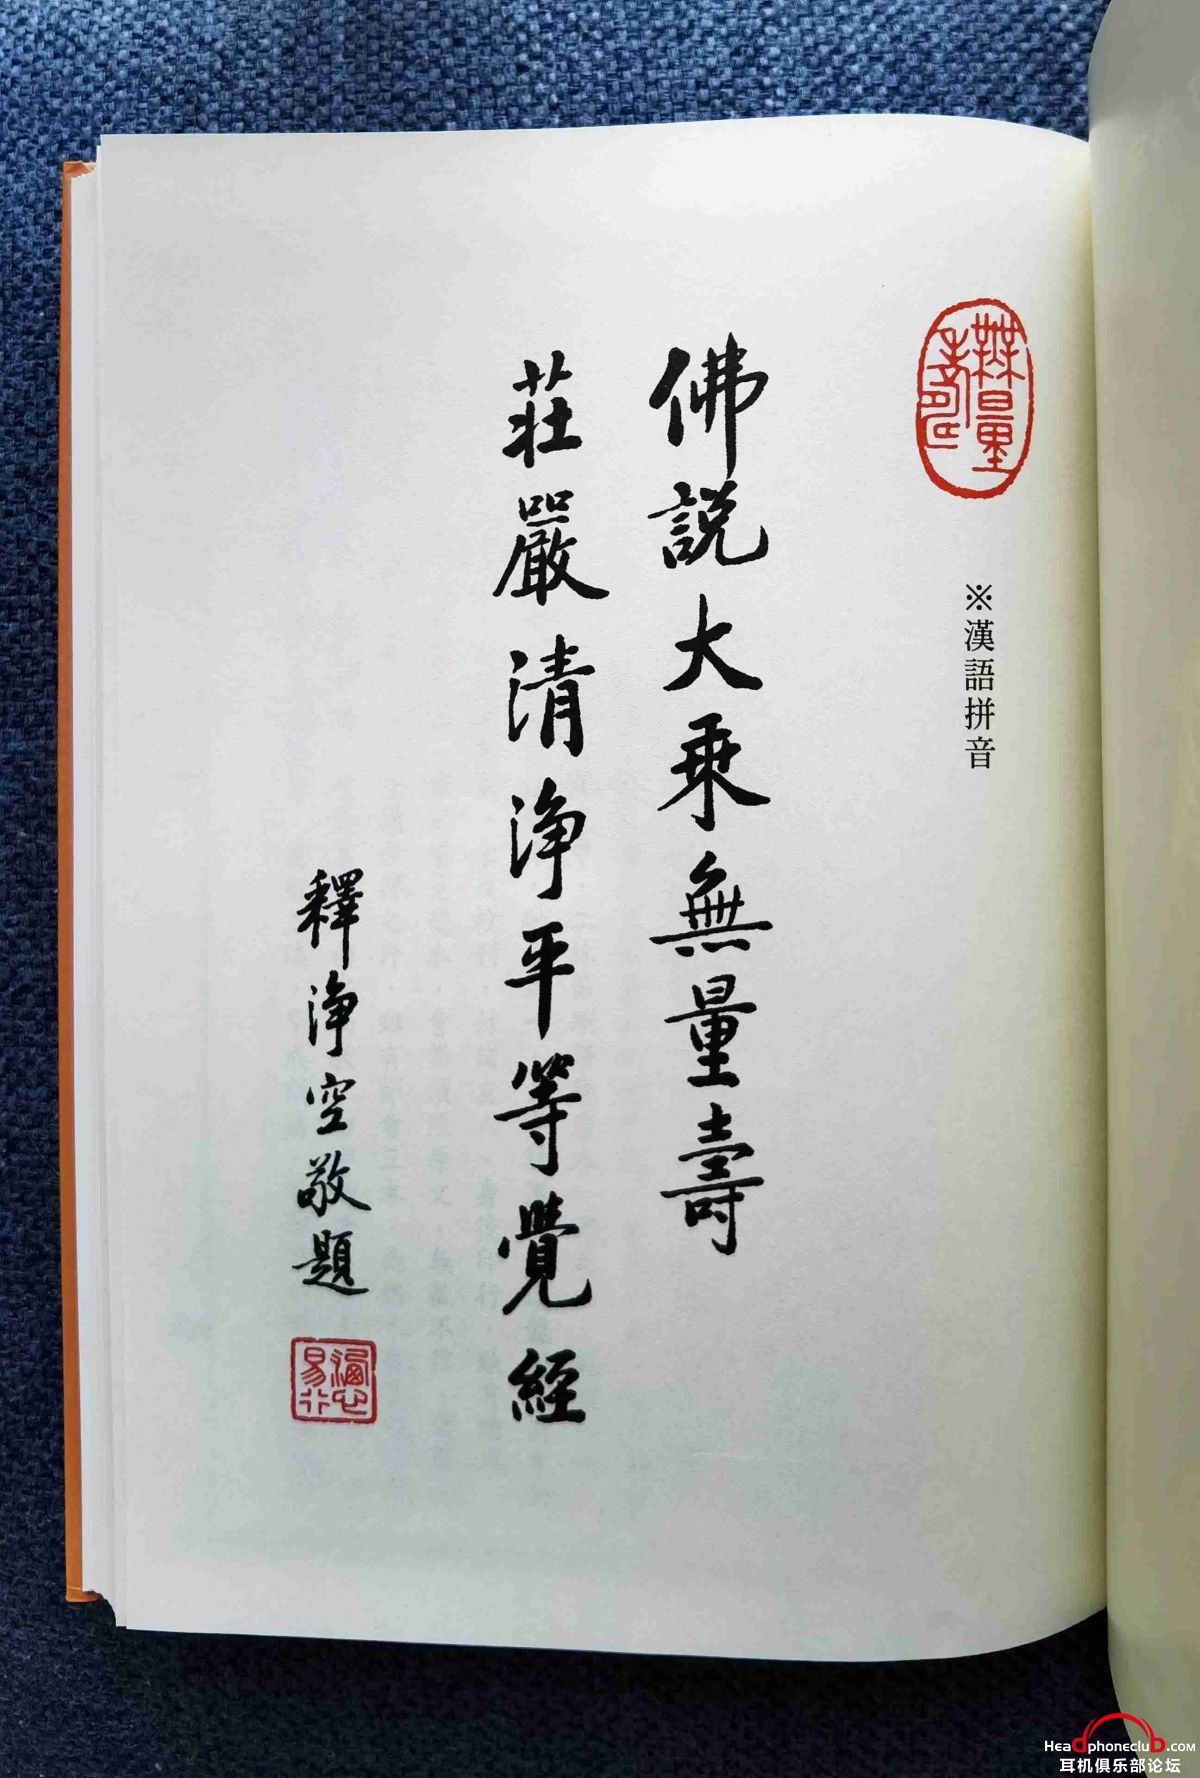 無量壽
※漢語拼音
佛說大乘無量壽
莊嚴清淨平等覺經
釋淨空敬題
Headphoneclub.com
耳机俱乐部论坛